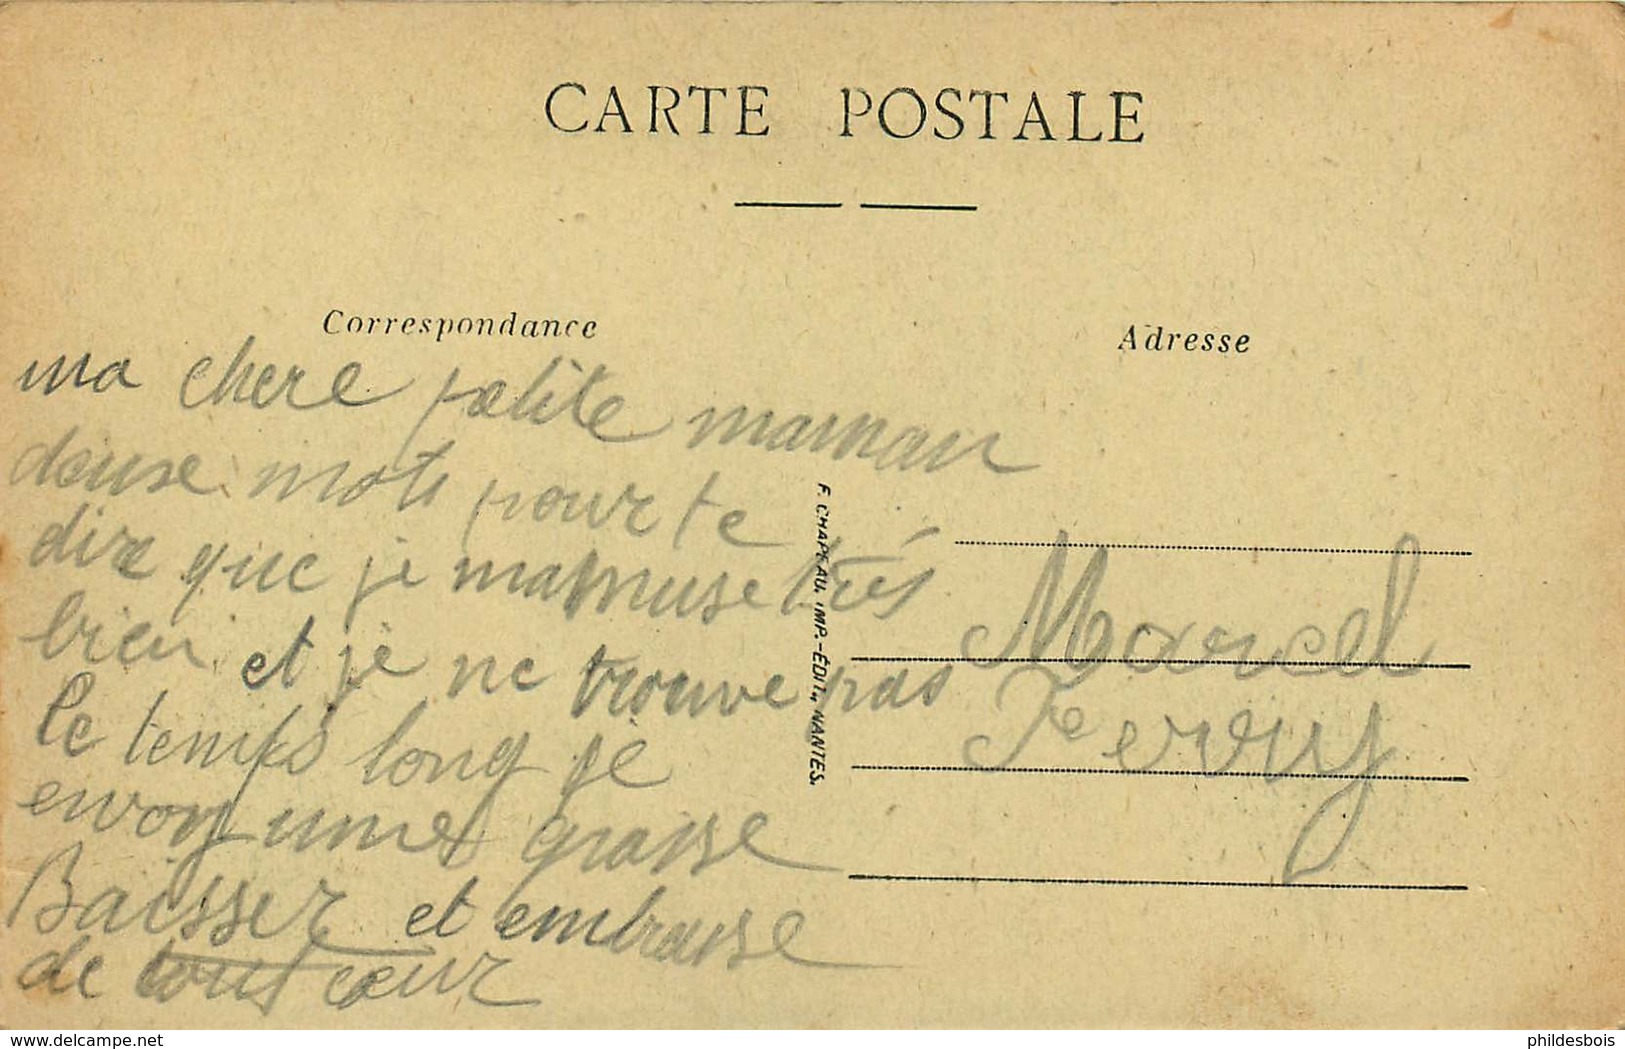 CARTE POSTALE
Correspondance
ma chere petite maman
deuse mots pour te
dire que je mamuse très
bien et je ne trouve pas
le temps long je
envoy une grosse
Baisser et embrasse
de tout cœur
F. CHAPEAU, IMP.-ÉDIT., NANTES.
Adresse
Marcel
Ferruy
www.delcampe.net
phildesbois